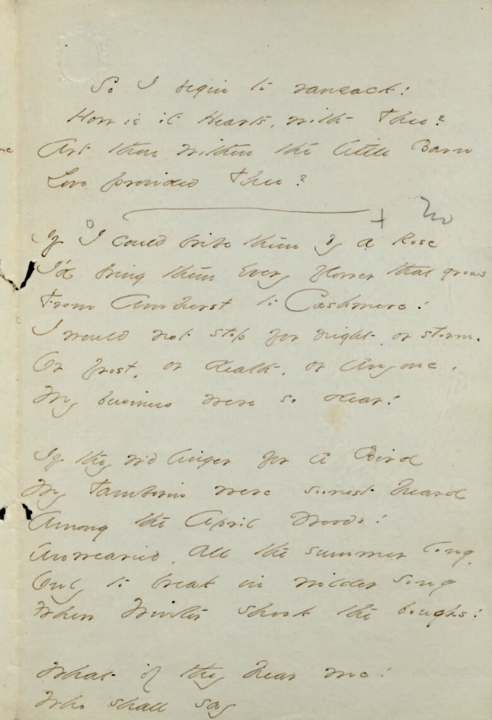 So I begin to ransack!
How is it Hearts, with Thee?
Art thou within the little Barn
Love provided Thee?
If I could bribe them by a Rose
I'd bring them Every flower that grows
From Amherst to Cashmere!
I would not stop for night, or storm.
Or frost, or death, or Anyone.
My business were so dear!
If they wd linger for a Bird
My Tamborin were soonest heard
Among the April Woods!
Unwearied, All the summer long,
Only to break in wilder song
When Winter shook the boughs!
What if they hear me!
Who shall say